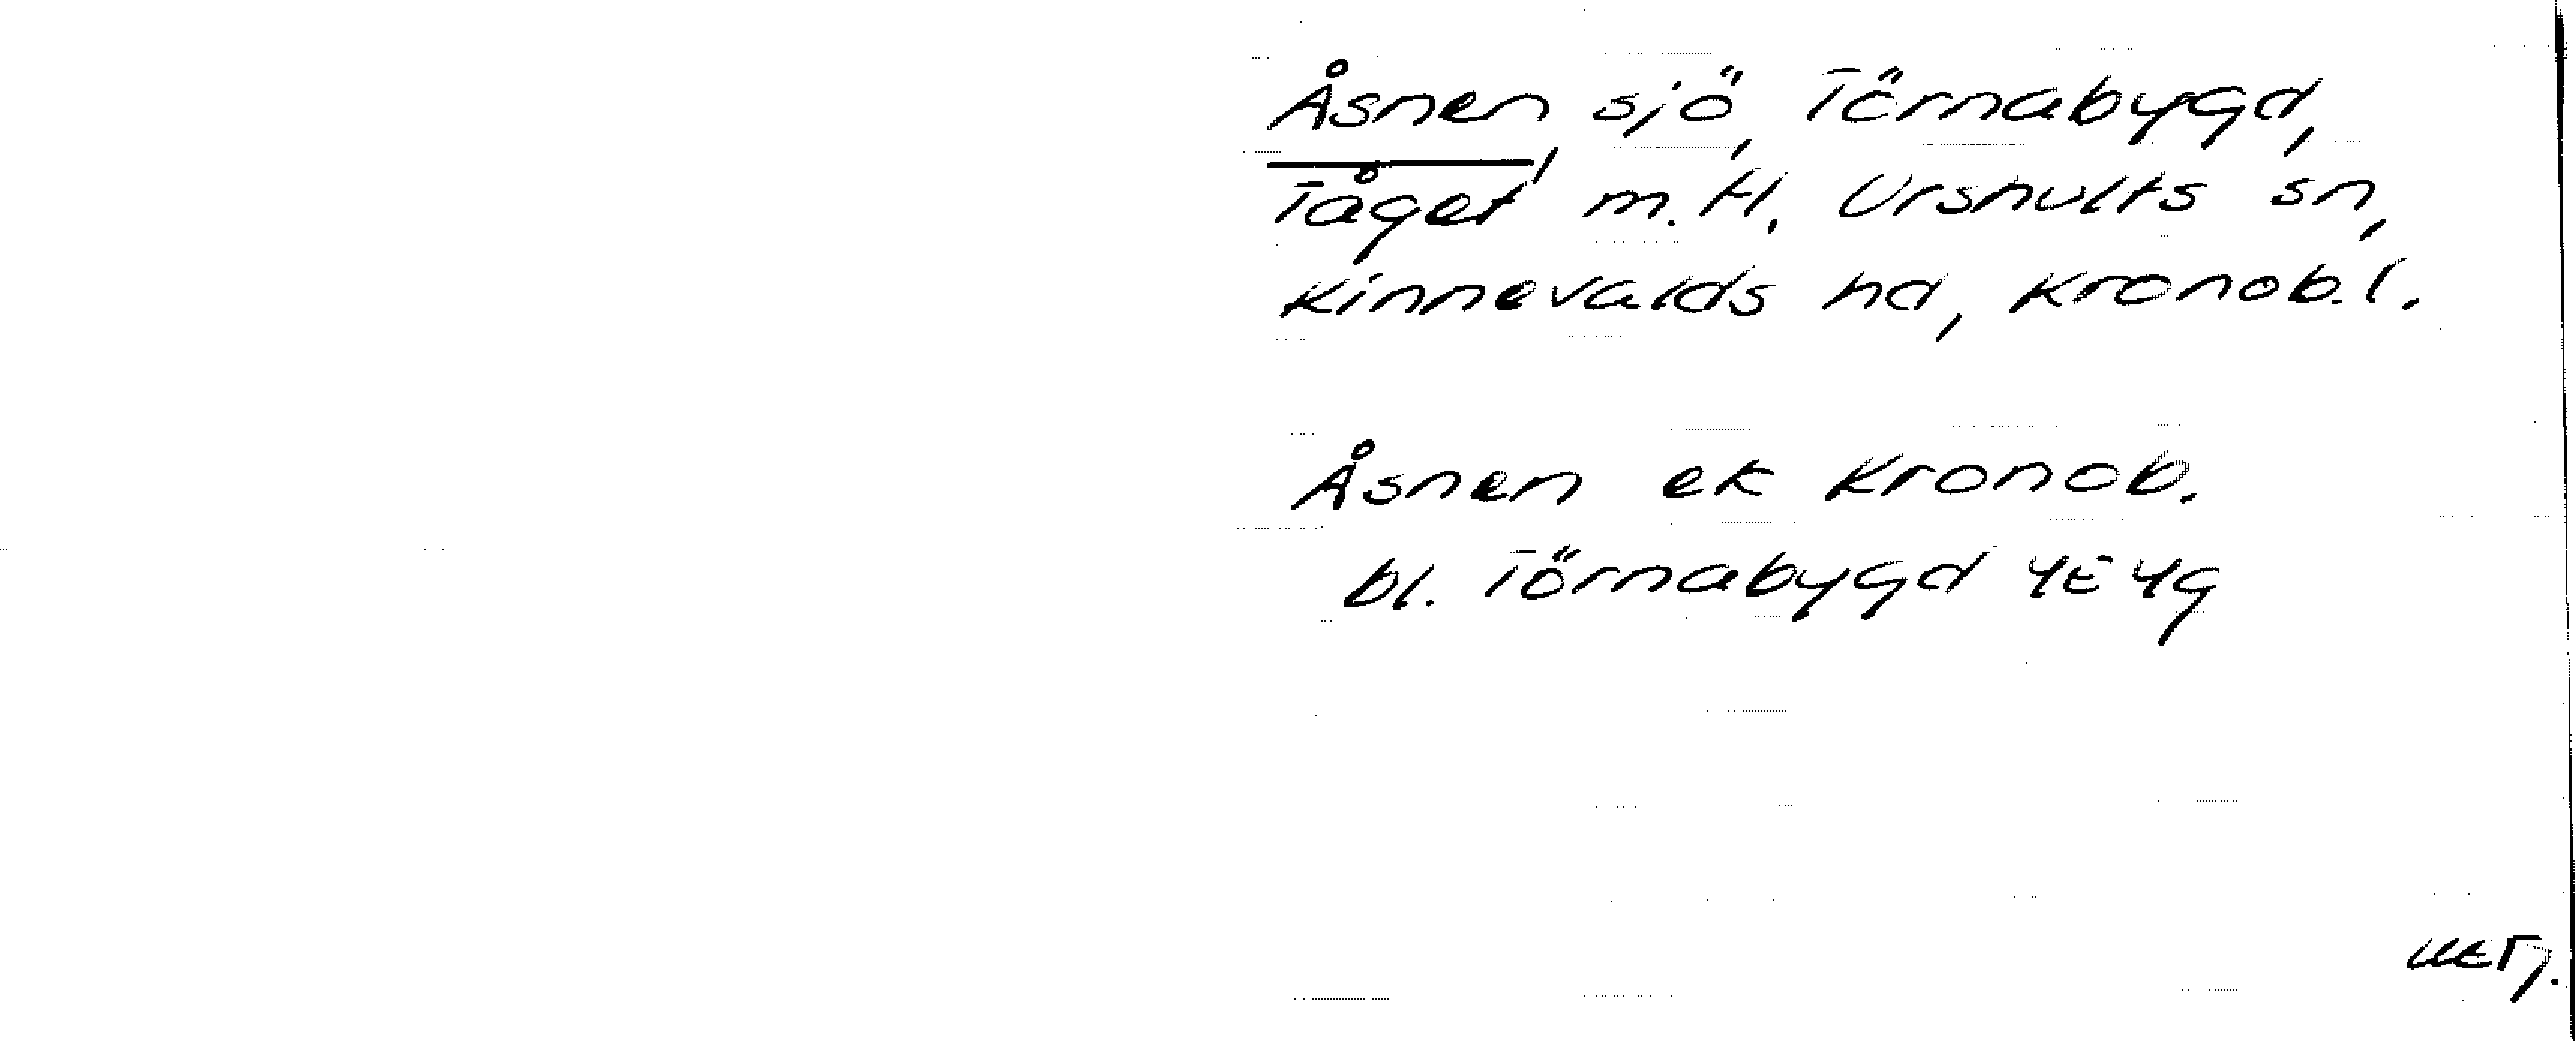 Åsnen, sjö, Törnabygd,
Tåget m.fl. Urshults sn,
Kinnevalds hd, Kronob.l.
Åsnen ek Kronob.
bl. Törnabygd 4E4g